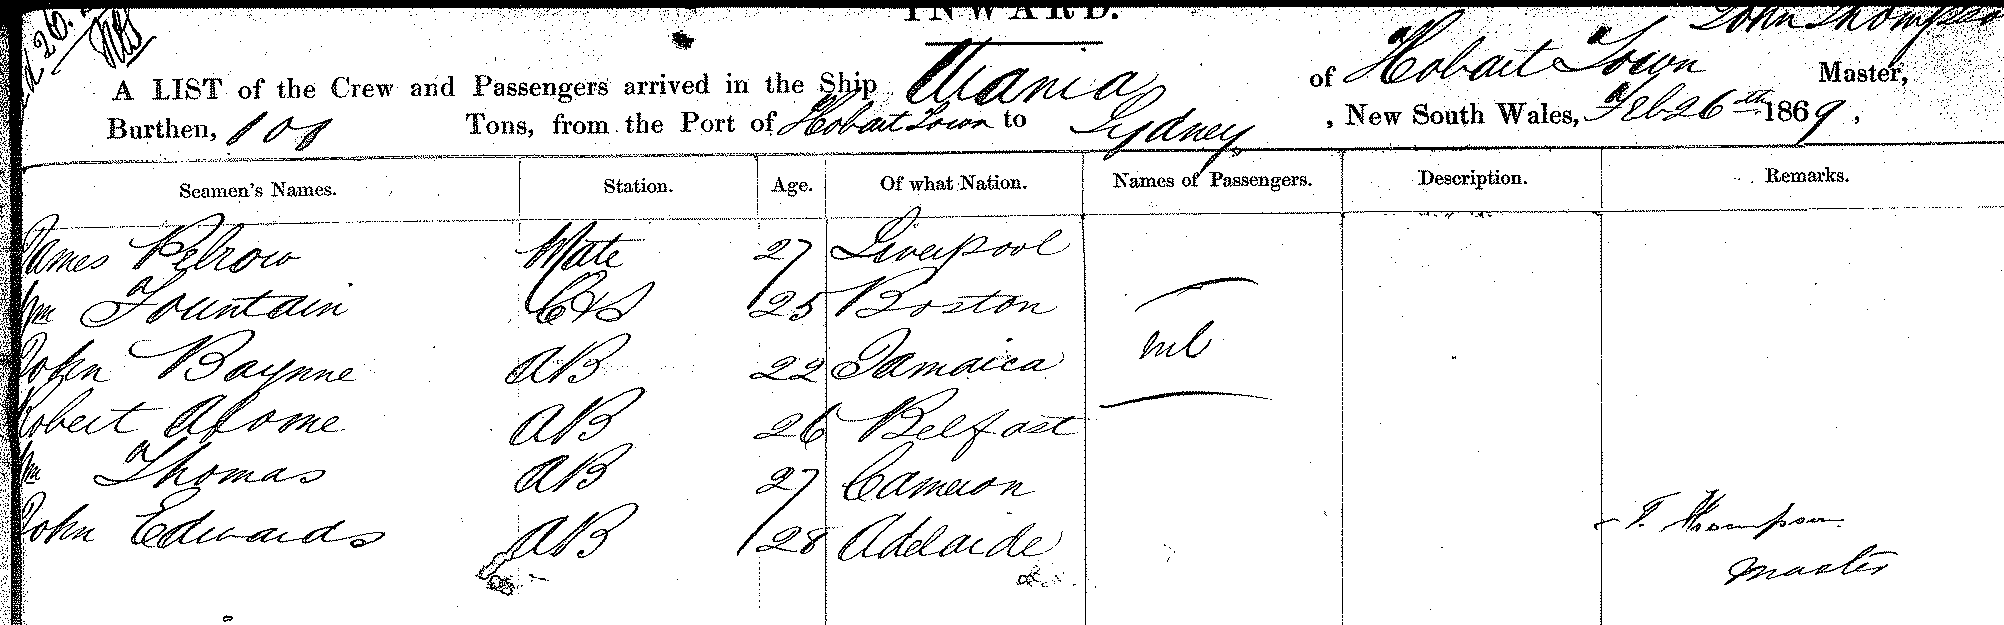 INWARD.
John Thompson
A LIST of the Crew and Passengers arrived in the Ship Urania of Hobart Town Master,
Burthen, 108 Tons, from the Port of Hobart Town to Sydney, New South Wales, Feb 26th 1869,
Seamen's Names. Station. Age. Of what Nation. Names of Passengers. Description. Remarks.
James Pelrow Mate 27 Liverpool
Wm Fountain C&S 25 Boston
John Baynne AB 22 Jamaica nil
Robert Alome AB 26 Belfast
Wm Thomas AB 27 Cameron
John Edwards AB 28 Adelaide
T. Thompson
Master